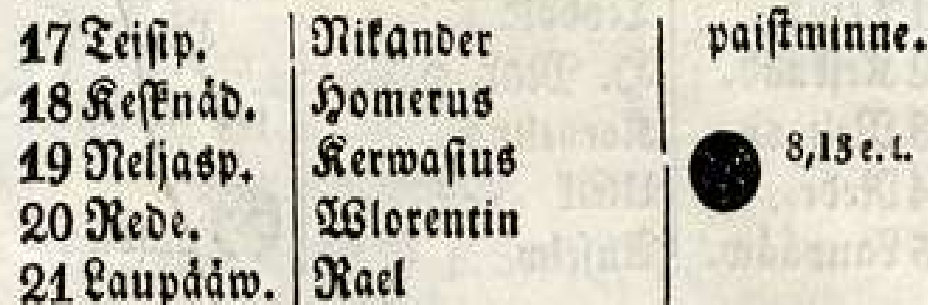 17 Teisip. Nikander paistminne.
18 Kesknäd. Homerus
19 Neljasp. Kerwasius 8,13 e. l.
20 Rede. Wlorentin
21 Laupääw. Rael